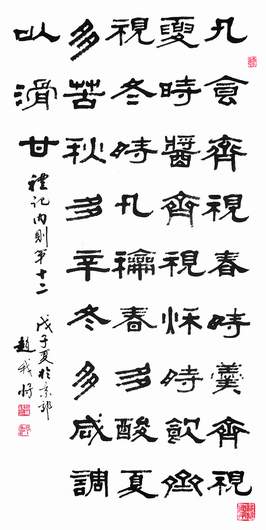 凡食齊視春時羹齊視
夏時醬齊視秌時飲齊
視冬時凡龢春多酸夏
多苦秋多辛冬多咸調
以滑甘
禮记内則第十二 戊子夏於京郊
趙